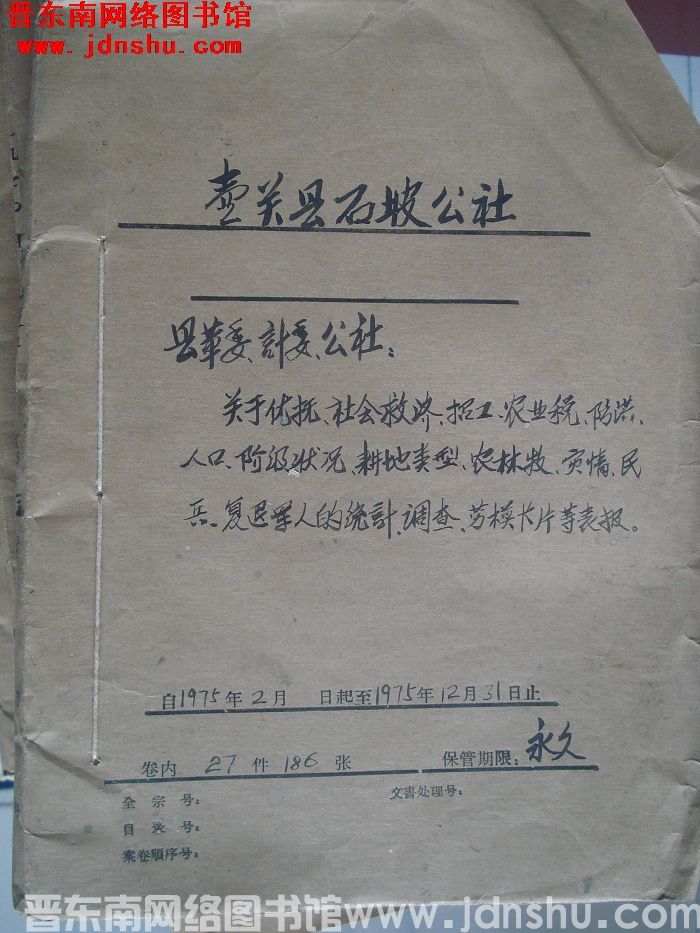 晋东南网络图书馆
www.jdnshu.com
壶关县石坡公社
县革委、計委、公社：
关于优抚、社会救济、招工、农业税、防洪、
人口、阶级状况、耕地类型、农林牧、灾情、民
兵、复退军人的统計、调查、劳模卡片等表报。
自1975年2月 日起至1975年12月31日止
卷内 27 件 186 张 保管期限：永久
全宗号： 文書处理号：
目录号：
案卷順序号：
晋东南网络图书馆www.jdnshu.com